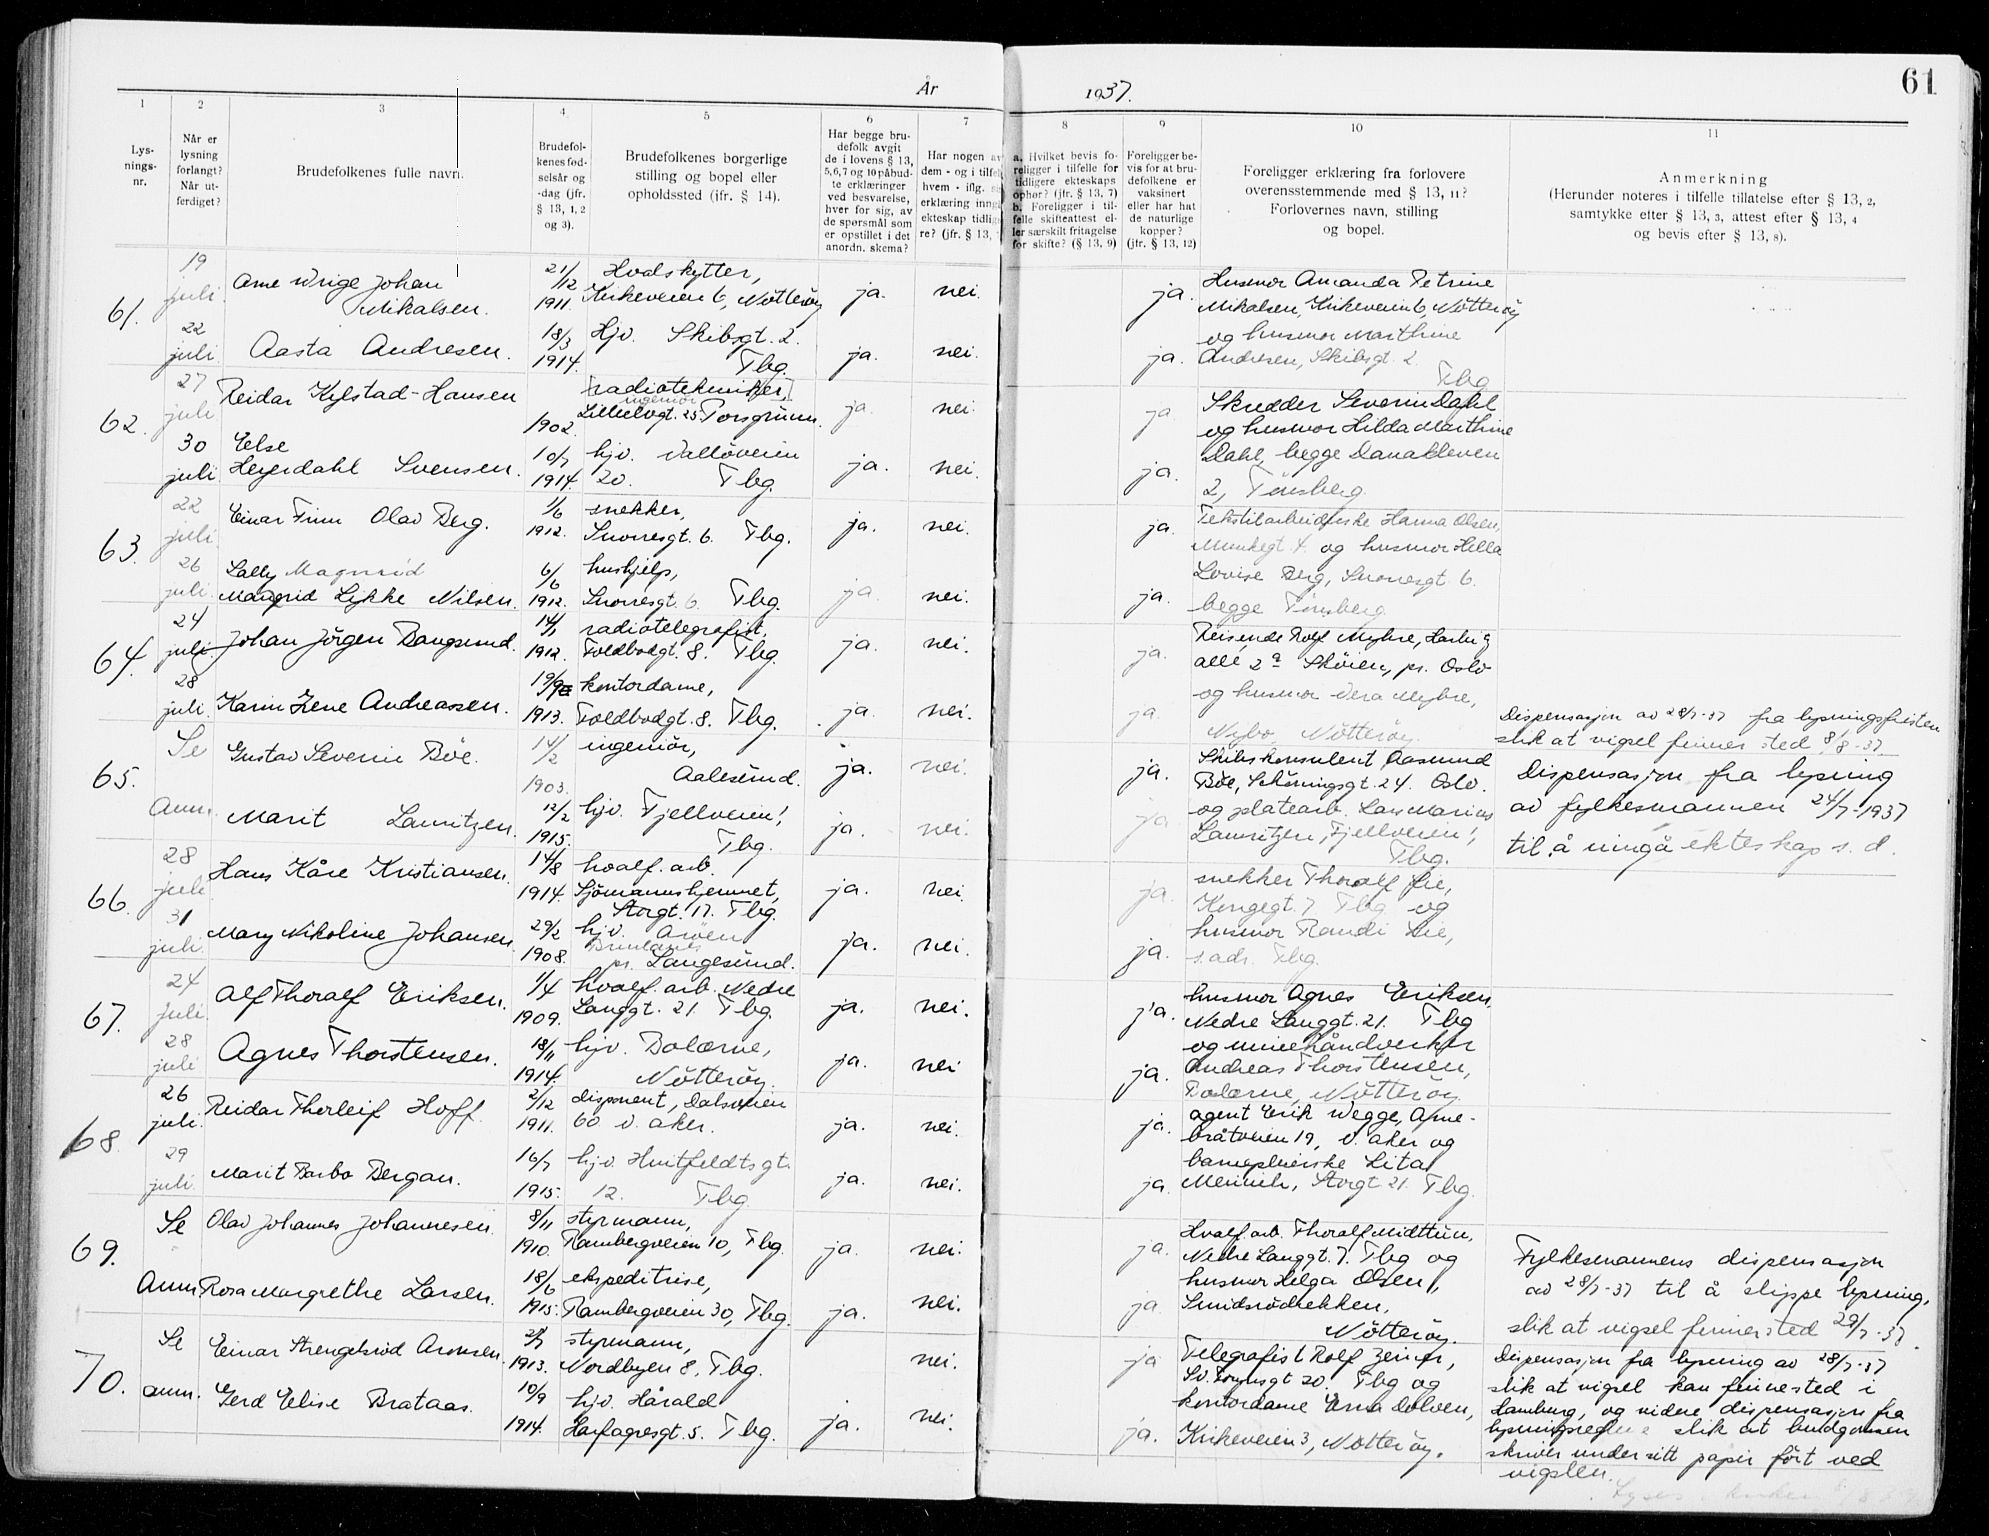 År 1937.
61
1 2 3 4 5 6 7 8 9 10 11
Lys-
nings-
nr.
Når er
lysning
forlangt?
Når ut-
ferdiget?
Brudefolkenes fulle navn.
Brudefol-
kenes fød-
selsår og
-dag (jfr.
§ 13, 1, 2
og 3).
Brudefolkenes borgerlige
stilling og bopel eller
opholdssted (ifr. § 14).
Har begge bru-
defolk avgit
de i lovens § 13,
5,6,7 og 10 påbud-
te erklæringer
ved besvarelse,
hver for sig, av
de spørsmål som
er opstillet i det
anordn. skema?
Har nogen av
dem - og i tilfel
hvem - iflg.
erklæring inng
ekteskap tidlig
re? (jfr. § 13,
a. Hvilket bevis fo-
religger i tilfelle for
tidligere ekteskaps
ophør? (jfr. § 13, 7)
b. Foreligger i til-
felle skifteattest el-
ler særskilt fritagelse
for skifte? (§ 13, 9)
Foreligger be-
vis for at bru-
defolkene er
vaksinert
eller har hat
de naturlige
kopper?
(jfr. § 13, 12)
Foreligger erklæring fra forlovere
overensstemmende med § 13, 11?
Forlovernes navn, stilling
og bopel.
Anmerkning
(Herunder noteres i tilfelle tillatelse efter § 13, 2,
samtykke efter § 13, 3, attest efter § 13, 4
og bevis efter § 13, 8).
61.
19
juli
Arne Wrige Johan
Mikalsen.
21/12
1911.
Hvalskytter,
Kirkeveien 6, Nøtterøy
ja. nei. ja.
Husmor Amanda Petrine
Mikalsen, Kirkeveien 6, Nøtterøy
og husmor Marthine
22
juli
Aasta Andresen.
18/3
1914.
Hjv. Skibsgt. 2.
Tbg.
ja. nei. ja.
Andresen, Skibsgt 2.
Tbg
62.
27
juli
Reidar Kylstad-Hansen
1902.
[radiotekniker,]
ingeniør
Lilleelvgt. 25 Porsgrunn.
ja. nei. ja
Skredder Severin Dahl
og husmor Hilda Marthine
30
juli
Else
Heyerdahl Svensen.
10/7
1914.
hjv. Valløveien
20. Tbg.
ja. nei. ja.
Dahl, begge Danakleven
2, Tønsberg.
63.
22
juli.
Einar Finn Olav Berg.
1/6
1912.
snekker,
Snorresgt. 6. Tbg.
ja. nei. ja.
Tekstilarbeiderske Hanna Olsen,
Munkegt. 4. og husmor Hilla
26
juli.
Lally Magnrød
Mangrid Lykke Nilsen.
6/6
1912.
hushjelp,
Snorresgt. 6. Tbg.
ja. nei. ja.
Lovise Berg, Snorresgt. 6.
begge Tønsberg.
64.
24
juli.
Johan Jørgen Bangsund.
14/1
1912.
radiotelegrafist,
Toldbodgt. 8. Tbg.
ja. nei. ja.
Reisende Rolf Myhre, Harbitz
allé 2a Skøien, pr. Oslo
28
juli.
Karin Irene Andreassen.
19/9
1913.
kontordame,
Toldbodgt. 8. Tbg.
ja. nei. ja.
og husmor Vera Myhre,
Nybo, Nøtterøy.
Dispensasjon av 28/7-37 fra lysningsfristen
slik at vigsel finner sted 8/8-37
65.
Se
Gustav Severin Bøe.
14/2
1903.
ingeniør,
Aalesund.
ja. nei. ja.
Skibskonsulent Aasmund
Bøe, Schøningsgt. 24. Oslo.
Dispensasjon fra lysning
av fylkesmannen 24/7-1937
til å inngå ekteskap s. d.
Anm.
Marit Lauritzen.
12/2
1915.
hjv. Fjellveien 1,
Tbg.
ja. nei. ja
og platearb. Lars Marius
Lauritzen, Fjellveien 1,
Tbg.
66.
28
juli
Hans Kåre Kristiansen.
14/8
1914.
hvalf. arb.
Sjømannshjemmet,
Storgt. 17. Tbg.
ja. nei. ja.
snekker Thoralf Lie,
Kongegt. 7 Tbg og
31
juli.
Mary Nikoline Johansen.
29/2
1908.
hjv. Arøen
Brunlanes
pr. Langesund.
ja. nei. ja.
husmor Randi Lie,
s. adr. Tbg.
67.
24
juli.
Alf Thoralf Eriksen.
1/4
1909.
hvalf. arb. Nedre
Langgt. 21. Tbg.
ja. nei. ja.
husmor Agnes Eriksen,
Nedre Langgt. 21. Tbg
28
juli
Agnes Thorstensen.
18/11
1914.
hjv. Bolærne,
Nøtterøy.
ja. nei ja.
og minehåndverker
Andreas Thorstensen,
Bolærne, Nøtterøy.
68.
26
juli.
Reidar Thorleif Hoff.
2/12
1911.
disponent, Dalsveien
60 v. aker.
ja. nei. ja.
agent Erik Wegge, Arne-
bråtveien 19, v. aker og
29
juli.
Marit Barbo Bergan.
16/7
1915.
hjv. Huitfeldtsgt.
12. Tbg
ja. nei. ja.
barnepleierske Lita
Meinich, Storgt 21. Tbg.
69.
Se
Olav Johannes Johannesen.
8/11
1910.
styrmann,
Rambergveien 10, Tbg.
ja. nei. ja.
Hvalf. arb. Thoralf Midttun,
Nedre Langgt. 7. Tbg og
Fylkesmannens dispensasjon
av 28/7-37 til å slippe lysning,
slik at vigsel finner sted 29/7-37.
Anm
Rosa Margrethe Larsen.
18/6
1915.
ekspeditrise,
Rambergveien 30, Tbg.
ja. nei. ja.
husmor Helga Olsen,
Smidsrødbekken,
Nøtterøy.
70.
Se
Einar Strengelsrød Aronsen.
1913.
styrmann,
Nordbyen 8. Tbg.
nei. ja
Telegrafist Rolf Zeiner,
Sv. Foynsgt 20. Tbg og
Dispensasjon fra lysning av 28/7-37
slik at vigsel kan finne sted i
Hamburg, og videre dispensasjon fra
lysningsreglene slik at brudgommen
skriver under sitt papir først ved
vigslen.
anm.
Gerd Elise Brataas.
10/9
1914.
hjv. Hårald
Harfagresgt. 5. Tbg.
ja. nei. ja.
kontordame Erna Dolven,
Kirkeveien 3, Nøtterøy.